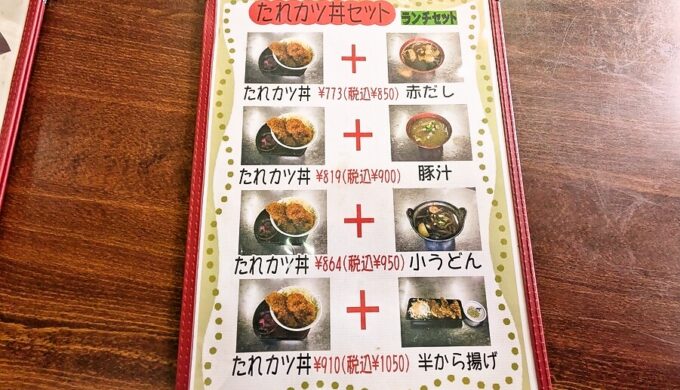 たれカツ丼セット ランチセット
たれカツ丼 ¥773(税込¥850) 赤だし
たれカツ丼 ¥819(税込¥900) 豚汁
たれカツ丼 ¥864(税込¥950) 小うどん
たれカツ丼 ¥910(税込¥1050) 半から揚げ